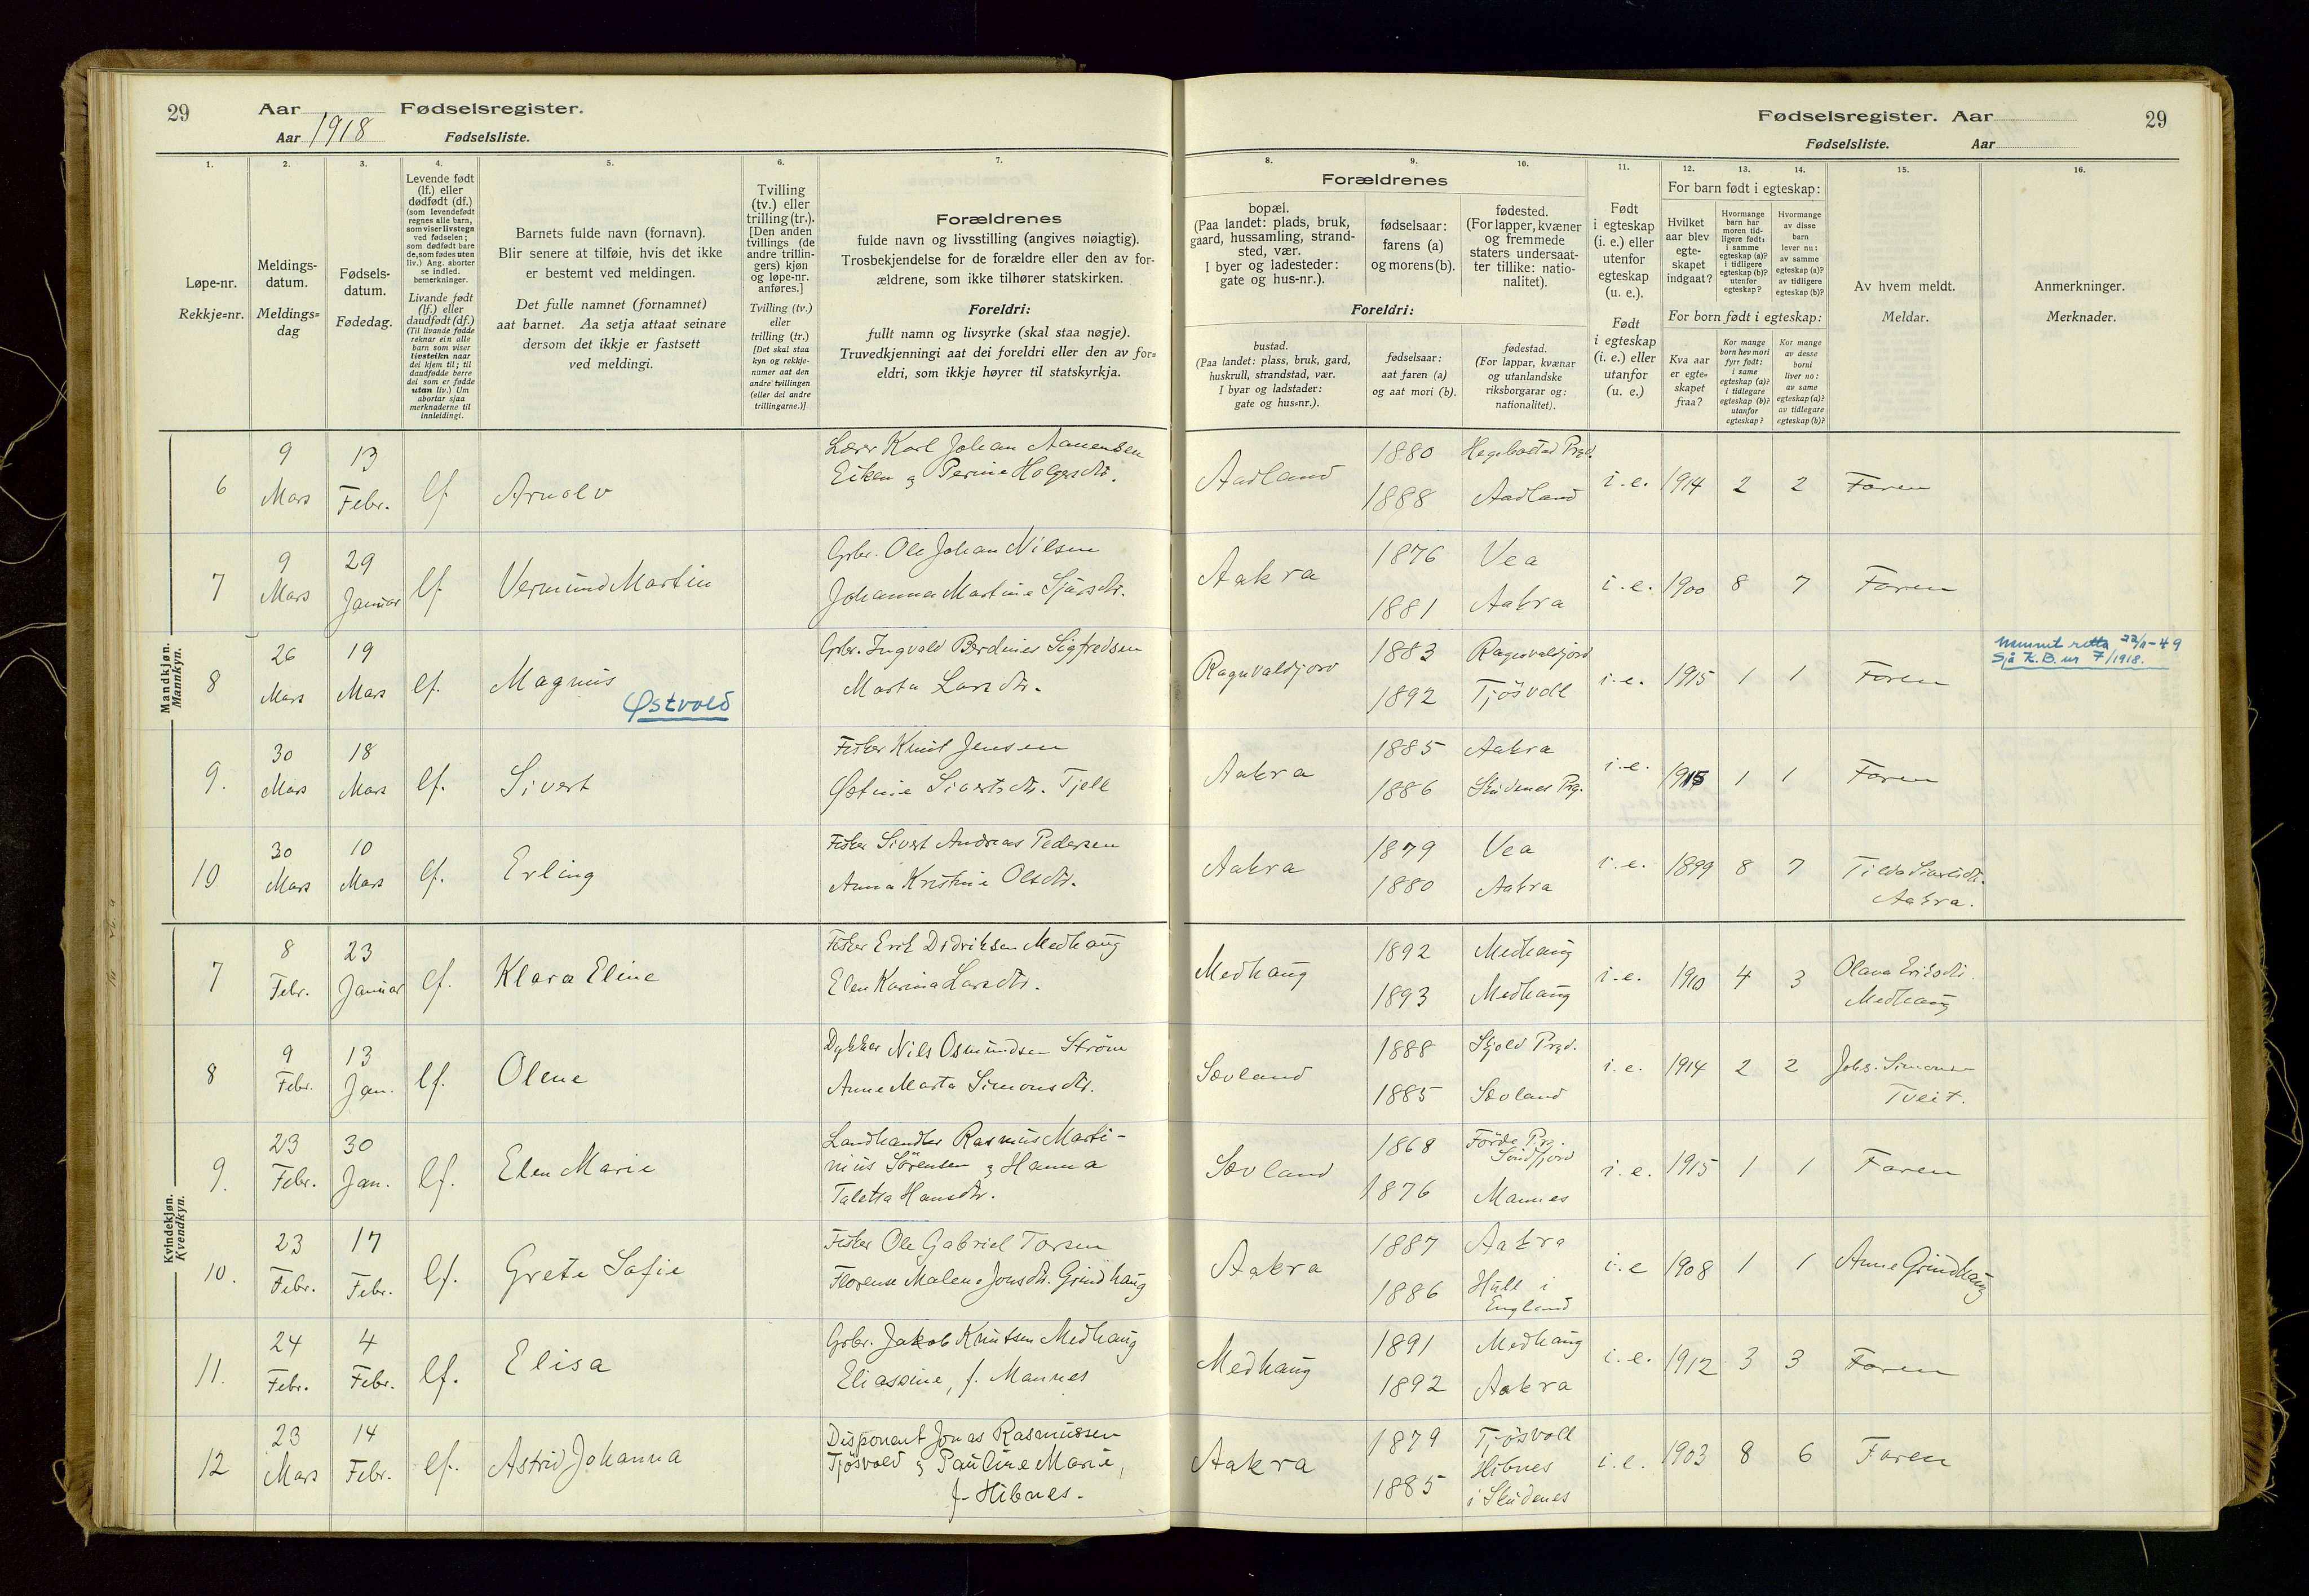 29
Aar Fødselsregister.
Aar 1918 Fødselsliste.
Fødselsregister. Aar
Fødselsliste. Aar
29
1. 2. 3. 4. 5. 6. 7.
Løpe-nr.
Rekkje=nr.
Meldings-
datum.
Meldings=
dag
Fødsels-
datum.
Fødedag.
Levende født
(lf.) eller
dødfødt (df.)
(som levendefødt
regnes alle barn,
som viser livstegn
ved fødselen;
som dødfødt bare
de, som fødes uten
liv.) Ang. aborter
se indled.
bemerkninger.
Livande født
(lf.) eller
daudfødt (df.)
(Til livande fødde
reknar ein alle
barn som viser
livsteikn naar
dei kjem til; til
daudfødde berre
dei som er fødde
utan liv.) Um
abortar sjaa
merknaderne til
innleidingi.
Barnets fulde navn (fornavn).
Blir senere at tilføie, hvis det ikke
er bestemt ved meldingen.
Det fulle namnet (fornamnet)
aat barnet. Aa setja attaat seinare
dersom det ikkje er fastsett
ved meldingi.
Tvilling
(tv.) eller
trilling (tr.).
[Den anden
tvillings (de
andre trillin-
gers) kjøn
og løpe-nr.
anføres.]
Tvilling (tv.)
eller
trilling (tr.)
[Det skal staa
kyn og rekkje-
numer aat den
andre tvillingen
(eller dei andre
trillingarne.)]
Forældrenes
fulde navn og livsstilling (angives nøiagtig).
Trosbekjendelse for de forældre eller den av for-
ældrene, som ikke tilhører statskirken.
Foreldri:
fullt namn og livsyrke (skal staa nøgje).
Truvedkjenningi aat dei foreldri eller den av for=
eldri, som ikkje høyrer til statskyrkja.
8. 9. 10. 11. 12. 13. 14. 15. 16.
Forældrenes
bopæl.
(Paa landet: plads, bruk,
gaard, hussamling, strand-
sted, vær.
I byer og ladesteder:
gate og hus-nr.).
fødselsaar:
farens (a)
og morens (b).
fødested.
(For lapper, kvæner
og fremmede
staters undersaat-
ter tillike: natio-
nalitet).
Foreldri:
bustad.
(Paa landet: plass, bruk, gard,
huskrull, strandstad, vær.
I byar og ladstader:
gate og hus=nr.).
fødselsaar:
aat faren (a)
og aat mori (b).
fødestad.
(For lappar, kvænar
og utanlandske
riksborgarar og:
nationalitet).
Født
i egteskap
(i. e.) eller
utenfor
egteskap
(u. e.).
Født
i egteskap
(i. e.) eller
utanfor
(u. e.)
For barn født i egteskap:
Hvilket
aar blev
egte-
skapet
indgaat?
Hvormange
barn har
moren tid-
ligere født:
i samme
egteskap (a)?
i tidligere
egteskap (b)?
utenfor
egteskap?
Hvormange
av disse
barn
lever nu:
av samme
egteskap (a)?
av tidligere
egteskap (b)?
For born født i egteskap:
Kva aar
er egte=
skapet
fraa?
Kor mange
born hev mori
fyrr født:
i same
egteskap (a)?
i tidlegare
egteskap (b)?
utanfor
egteskap?
Kor mange
av desse
borni
liver no:
av same
egteskap (a)?
av tidlegare
egteskap (b)?
Av hvem meldt.
Meldar.
Anmerkninger.
Merknader.
Mandkjøn.
Mannkyn.
6 9 Mars 13 Febr. lf. Arnolv
Lærer Karl Johan Aanensen
Eiken & Perine Holgersdtr.
Aadland 1880 Hegebostad Prgd.
1888 Aadland
i. e. 1914 2 2 Faren
7 9 Mars 29 Januar lf. Vermund Martin
Grbr. Ole Johan Nilsen
Johanna Martine Sjursdtr.
Aakra 1876 Vea
1881 Aakra
i. e. 1900 8 7 Faren
8 26 Mars 19 Mars lf. Magnus
Østvold
Grbr. Ingvald Berdines Sigfredsen
Marta Larsdtr.
Ragnvaldjord 1883 Ragnvaldjord
1892 Tjösvoll
i. e. 1915 1 1 Faren
Namnet retta 22/11-49
Sjå K.B. nr 7/1918.
9. 30 Mars 18 Mars lf. Sivert
Fisker Knut Jensen
Østine Sivertsdtr. Tjell
Aakra 1885 Aakra
1886 Skudenes Prg.
i. e. 1915 1 1 Faren
10 30 Mars 10 Mars lf. Erling
Fisker Sivert Andreas Pedersen
Anna Kristine Olsdtr.
Aakra 1879 Vea
1880 Aakra
i. e. 1899 8 7 Tilda
Aakra.
Kvindekjøn.
Kvendkyn.
7 8 Febr. 23 Januar lf. Klara Eline
Fisker Erik Didriksen Medhaug
Elen Karina Larsdtr.
Medhaug 1892 Medhaug
1893 Medhaug
i. e. 1910 4 3 Olava Eriksdtr.
Medhaug
8 9 Febr. 13 Jan. lf. Olene
Dykker Nils Osmundsen Ström
Anne Marta Simonsdtr.
Sævland 1888 Skjold Prgd.
1885 Sævland
i. e. 1914 2 2 Johs. Simonsen
Tveit.
9. 23 Febr. 30 Jan. lf. Elen Marie
Landhandler Rasmus Marti-
nius Sörensen & Hanna
Taletta Hansdtr.
Sævland 1868 Förde Prg.
Söndfjord
1876 Mannes
i. e. 1915 1 1 Faren
10. 23 Febr. 17 Febr. lf. Grete Sofie
Fisker Ole Gabriel Torsen
Florense Malene Jonsdtr. Grindhaug
Aakra 1887 Aakra
1886 Hull i
England
i. e 1908 1 1 Anne Grindhaug
11. 24 Febr. 4 Febr. lf. Elisa
Grbr. Jakob Knutsen Medhaug
Eliassine, f. Mannes
Medhaug 1891 Medhaug
1892 Aakra
i. e. 1912 3 3 Faren
12 23 Mars 14 Febr. lf. Astrid Johanna
Disponent Jonas Rasmussen
Tjösvold & Pauline Marie,
f. Hibnes.
Aakra 1879 Tjösvoll
1885 Hibnes
i Skudenes
i. e. 1903 8 6 Faren